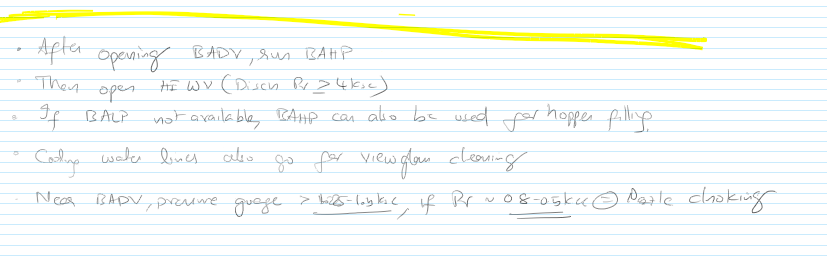 • After opening BADV, run BAHP
• Then open HI WV (Disch Pr ≥ 4ksc)
• If BALP not available, BAHP can also be used for hopper filling.
• Cooling water lines also go for view glass cleaning
• Near BADV, pressure guage > ksc, if Pr ~ 0.8-0.5ksc = Nozzle choking